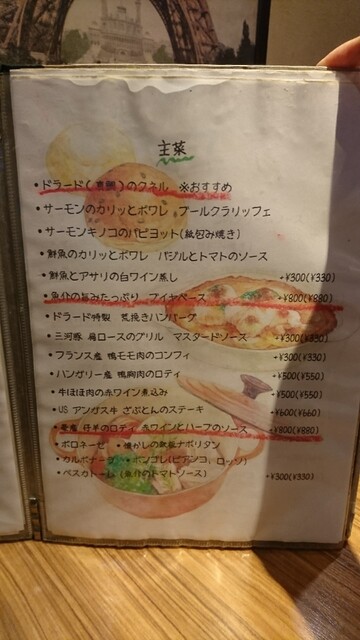 主菜
・ドラード(真鯛)のクネル ※おすすめ
・サーモンのカリッとポワレ ブールクラリッフェ
・サーモンキノコのパピヨット(紙包み焼き)
・鮮魚のカリッとポワレ バジルとトマトのソース
・鮮魚とアサリの白ワイン蒸し +¥300(¥330)
・魚介の旨みたっぷり ブイヤベース +¥800(¥880)
・ドラード特製 荒挽きハンバーグ
・三河豚 肩ロースのグリル マスタードソース +¥300(¥330)
・フランス産 鴨モモ肉のコンフィ +¥300(¥330)
・ハンガリー産 鴨胸肉のロティ +¥500(¥550)
・牛ほほ肉の赤ワイン煮込み +¥500(¥550)
・US アンガス牛 ざぶとんのステーキ +¥600(¥660)
・骨産 仔羊のロティ 赤ワインとハーブのソース +¥800(¥880)
・ボロネーゼ ・懐かしの鉄板ナポリタン
・カルボナーラ ・ボンゴレ(ビアンコ、ロッソ)
・ペスカトーレ(魚介のトマトソース) +¥300(¥330)